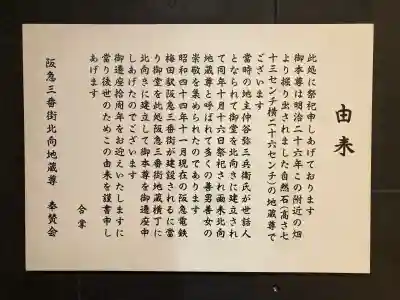 由来
此処に祭祀申しあげております
御本尊は明治二十六年この附近の畑
より掘り出されました自然石(高さ七
十三センチ横二十六センチ)の地蔵尊で
ございます
当時の地主仲谷弥三兵衛氏が世話人
となられて御堂を北向きに建立され
て同年十月十六日祭祀され画来北向
地蔵尊と呼ばれて多くの善男善女の
崇敬を集められたのであります
昭和四十四年十一月現在の阪急電鉄
梅田駅阪急三番街が建設されるに当
り御堂を此処阪急三番街地蔵横丁に
北向きに建立して御本尊を御遷座申
しあげたのでございます
御遷座拾周年をお迎えいたしますに
当り後世のためこの由来を謹書申し
あげます
合掌
阪急三番街北向地蔵尊 奉賛会